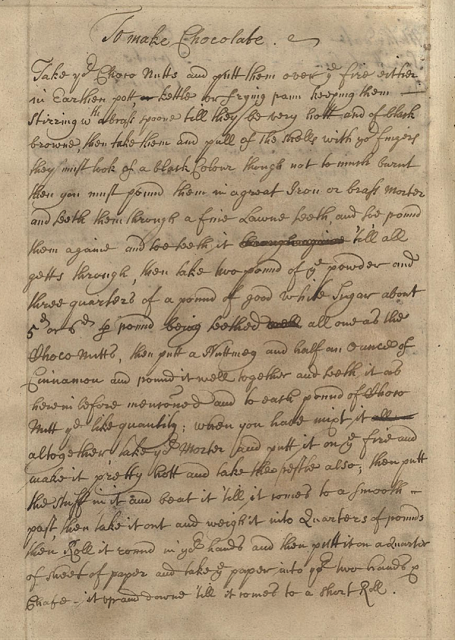 To make Chocolate.
Take ye Choco Nutts and putt them over ye fire either
in Earthen pott, kettle or frying pann keeping them
Stirring wth a brass spoone till they be very hott and of black
browne, then take them and pull of the sholls with yor fingers
they must look of a black Colour though not to much burnt
then you must pound them in a great Iron or brass morter
and seeth them through a fine Lawne seeth, and soe pound
them againe and soe seeth it through againe till all
getts through, then take two pound of ye powder and
three quarters of a pound of good white Sugar about
5d or 6d p pound being seethed well all one as the
Choco Nutts, then putt a Nuttmeg and half an ounce of
Cinnamon and pound it well together and seeth it as
herein before mentioned and to each pound of Choco
Nutt ye like quantity; when you have mixt it all
altogether take ye Morter and putt it on ye fire and
make it pretty hott and take the pestle also; then putt
the stuff in it and beat it till it comes to a smooth
past, then take it out and weigh it into Quarters of pounds
then Roll it round in yor hands and then putt it on a Quarter
of sheet of paper and take ye paper into yor two hands &
Chafe it up and downe till it comes to a short Roll.